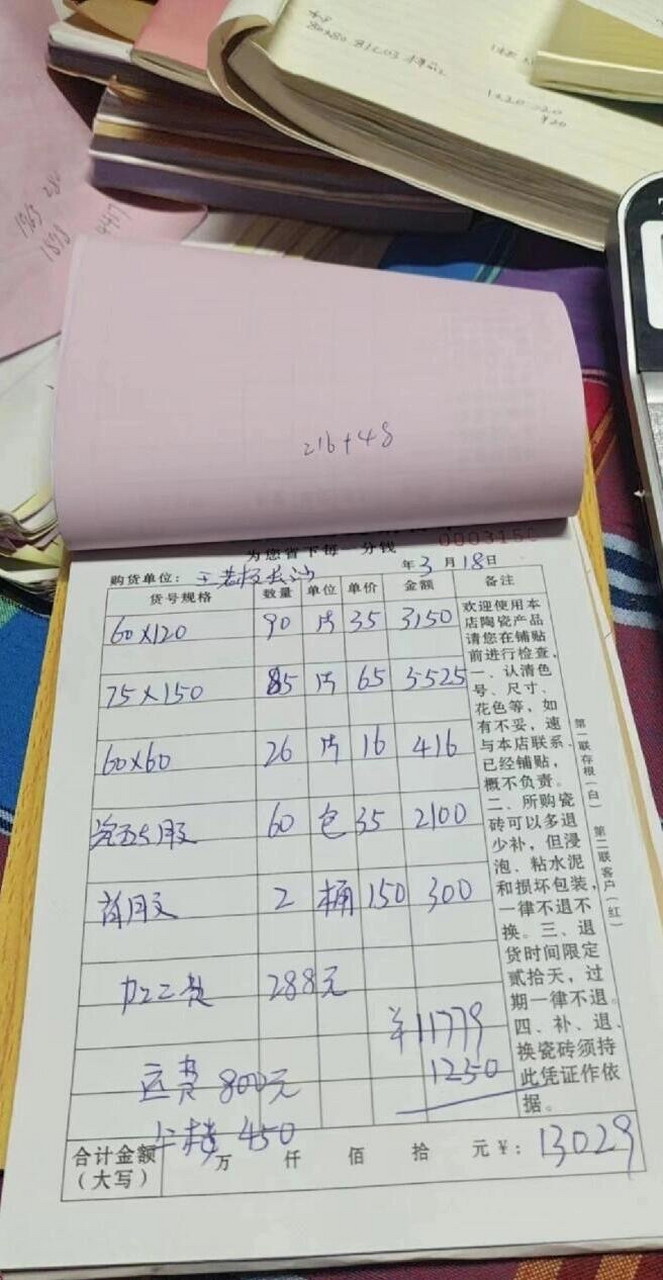 80x80
1x20=20
¥20
1965
280
1898
4417
216+48
为您省下每一分钱
000315
购货单位: 王老板长沙 年3月18日
货号规格 数量 单位 单价 金额 备注
60x120 90 片 35 3150
75x150 85 片 65 5525
60x60 26 片 16 416
60 包 35 2100
背胶 2 桶 150 300
加工费 288元
¥11779
运费 800元 1250
上楼 450
合计金额(大写) 万 仟 佰 拾 元¥: 13029
欢迎使用本
店陶瓷产品
请您在铺贴
前进行检查,
一、认清色
号、尺寸、
花色等,如
有不妥,速
与本店联系,
已经铺贴,
概不负责。
二、所购瓷
砖可以多退
少补,但浸
泡、粘水泥
和损坏包装,
一律不退不
换。三、退
货时间限定
贰拾天,过
期一律不退。
四、补、退、
换瓷砖须持
此凭证作依
据。
第一联存根(白)
第二联客户(红)